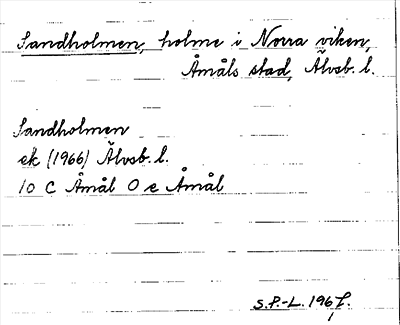 Sandholmen, holme i Norra viken,
Åmåls stad, Älvsb. l.
Sandholmen
ek (1966) Älvsb. l.
10 C Åmål 0 e Åmål
S.P.-L. 1967.